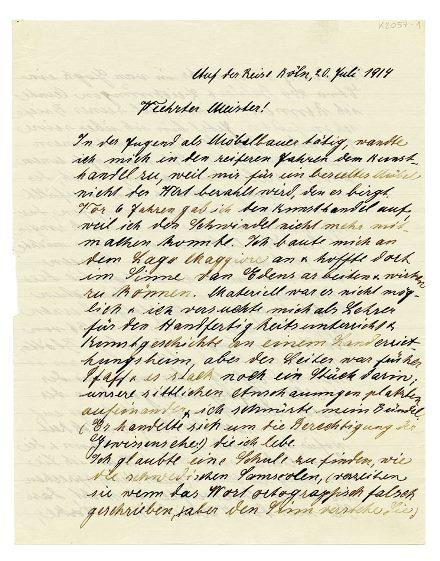 K2057-1
Auf der Reise Köln, 20. Juli 1914
Verehrter Meister!
In der Jugend als Möbelbauer tätig, wandte
ich mich in den reiferen Jahren dem Kunst-
handel zu, weil mir für ein beseeltes Möbel
nicht der Wert bezahlt wird, den es birgt.
Vor 6 Jahren gab ich den Kunsthandel auf,
weil ich den Schwindel nicht mehr mit-
mathen konnte. Ich baute mich an
dem Lago Maggiore an & hoffte dort
im Sinne van Edens arbeiten & wirken
zu können. Materiell war es nicht mög-
lich & ich versuchte mich als Lehrer
für den Handfertigkeitsunterricht &
Kunstgeschichte an einem Landerzieh-
hungsheim, aber der Leiter war früher
Pfaff & es stack noch ein Stück darin;
unsere sittlichen Anschauungen platzten
aufeinander & ich schnürte mein Bündel.
(Er handelte sich um die Berechtigung der
Gewissensehe!) die ich lebe
Ich glaubte eine Schule zu finden, wie
die schwedischen Samscolen, (verzeihen
sie wenn das Wort ortograppisch falsch
geschrieben, aber den Sinn verstehe Sie)